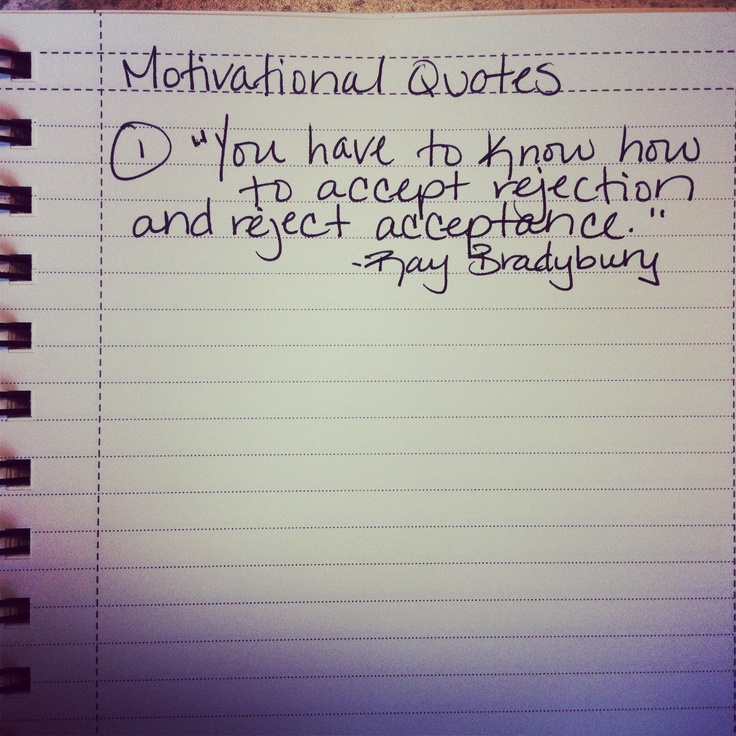 Motivational Quotes
① "You have to know how
to accept rejection
and reject acceptance."
-Ray Bradybury